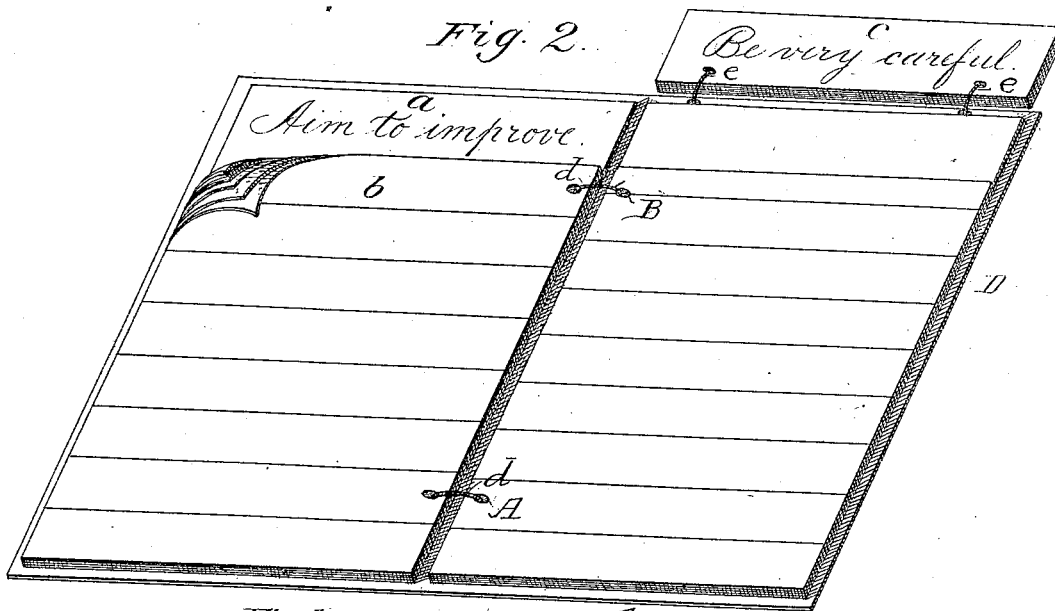 Fig. 2.
C
Be very careful.
e e
a
Aim to improve.
b
d
B
D
d
A